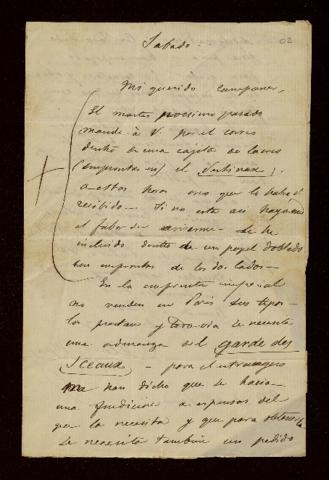 Sabado.
02
Mi querido campaner,
El martes proximo pasado
mandé à V. por el correo
dentro de una cajita de lacres
(empruntas es) el Sabinas;
a estas horas creo que lo habrá
recibido — Si no esta asi hagame
el fabor de avisarme — Se ha
incluido dentro de un papel doblado
con improntas de los dos lados —
En la emprenta imperial
no venden en Paris sus tipos —
los prestan y todavia se necesita
una ordenanza del garde des
Sceaux — para el estrangero
me han dicho que se hacia
una fundicion a espensas del
que la necesita y que para obtenerla
se necesita tambien un pedido